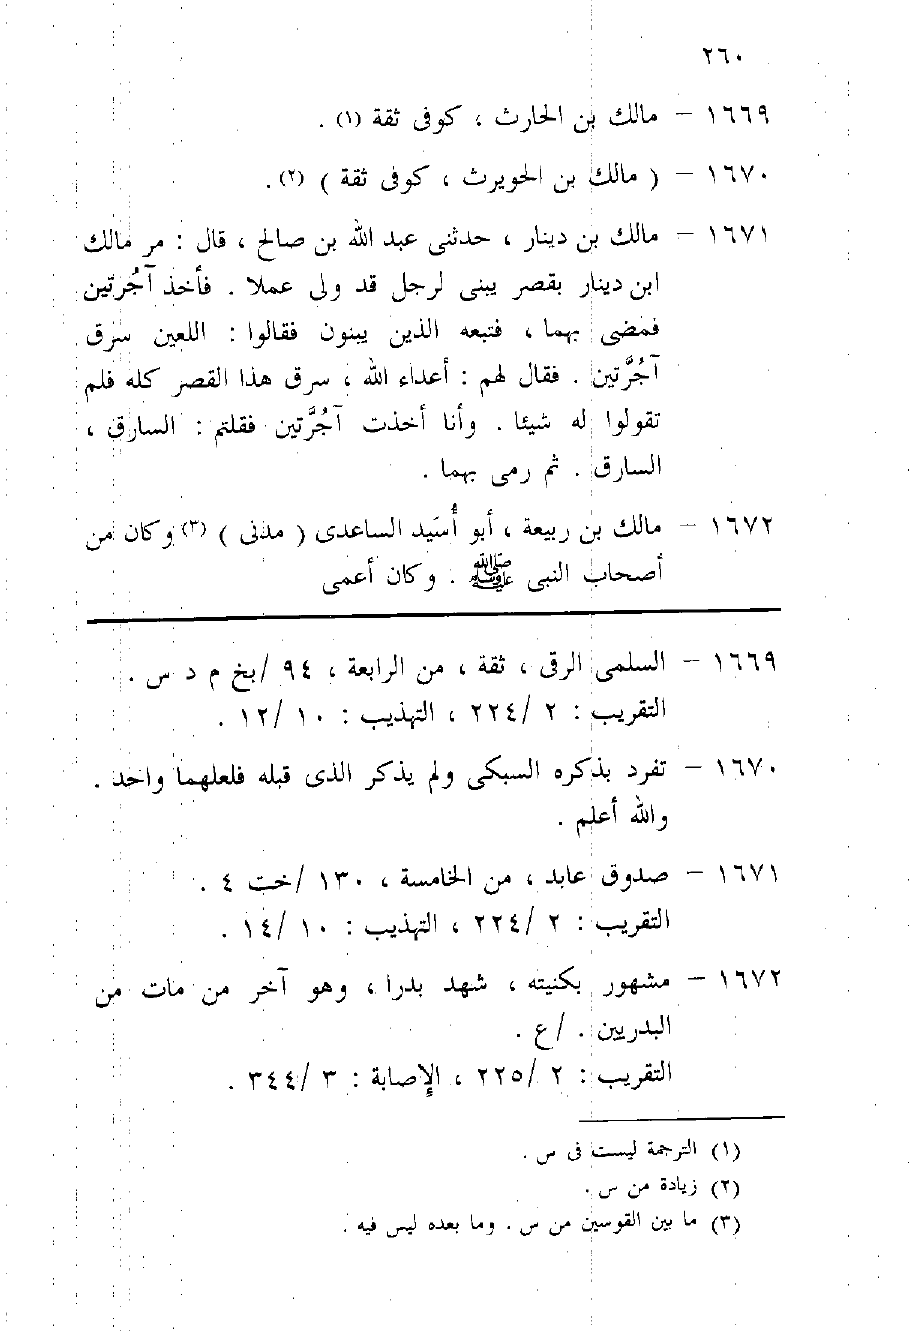 ٢٦٠
١٦٦٩ – مالك بن الحارث ، كوفى ثقة (١) .
١٦٧٠ – ( مالك بن الحويرث ، كوفى ثقة ) (٢) .
١٦٧١ – مالك بن دينار ، حدثنى عبد الله بن صالح ، قال : مر مالك
ابن دينار بقصر يبنى لرجل قد ولى عملا . فأخذ آجُرتين
فمضى بهما ، فتبعه الذين يبنون فقالوا : اللعين سرق
آجُرَّتين . فقال لهم : أعداء الله ، سرق هذا القصر كله فلم
تقولوا له شيئا . وأنا أخذت آجُرَّتين فقلتم : السارق ،
السارق . ثم رمى بهما .
١٦٧٢ – مالك بن ربيعة ، أبو أُسَيد الساعدى ( مدنى ) (٣) وكان من
أصحاب النبى ﷺ . وكان أعمى
١٦٦٩ – السلمى الرقى ، ثقة ، من الرابعة ، ٩٤ /بخ م د س .
التقريب : ٢ /٢٢٤ ، التهذيب : ١٠ /١٢ .
١٦٧٠ – تفرد بذكره السبكى ولم يذكر الذى قبله فلعلهما واحد .
والله أعلم .
١٦٧١ – صدوق عابد ، من الخامسة ، ١٣٠ /خت ٤ .
التقريب : ٢ /٢٢٤ ، التهذيب : ١٠ /١٤ .
١٦٧٢ – مشهور بكنيته ، شهد بدرا ، وهو آخر من مات من
البدريين . /ع .
التقريب : ٢ /٢٢٥ ، الإصابة : ٣ /٣٤٤ .
(١) الترجمة ليست فى س .
(٢) زيادة من س .
(٣) ما بين القوسين من س . وما بعده ليس فيه .